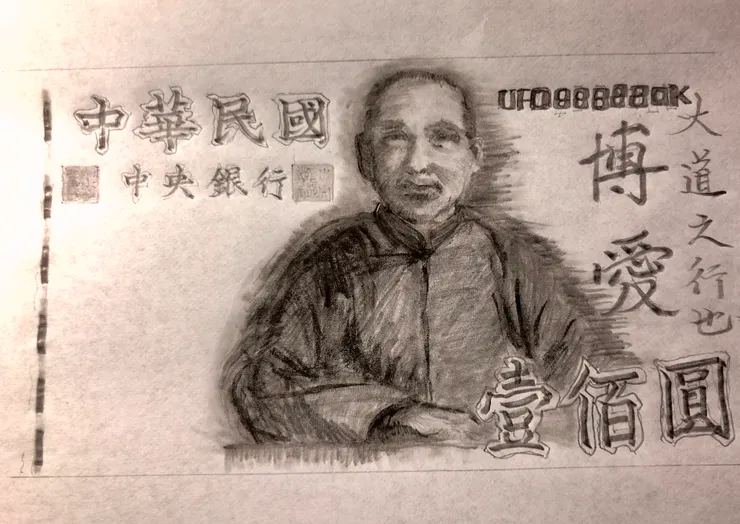 中華民國
中央銀行
UFO88888OK
博愛
大道之行也
壹佰圓